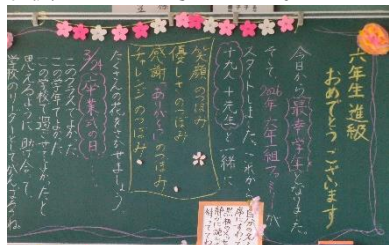 六年生 進級
おめでとうございます
今日から最高学年となりました。
そして、 六年 組 が
スタートしました。これから
十九人+先生と一緒に
笑顔のつぼみ
優しさのつぼみ
感謝(ありがとう)のつぼみ
チャレンジのつぼみ
たくさんの花をさかせましょう
3/ 卒業の日
このクラスでよかった
この学年でよかった
この学校で過ごせてよかったと
思えるように助け合って
学校のリーダーとして がんばろうね